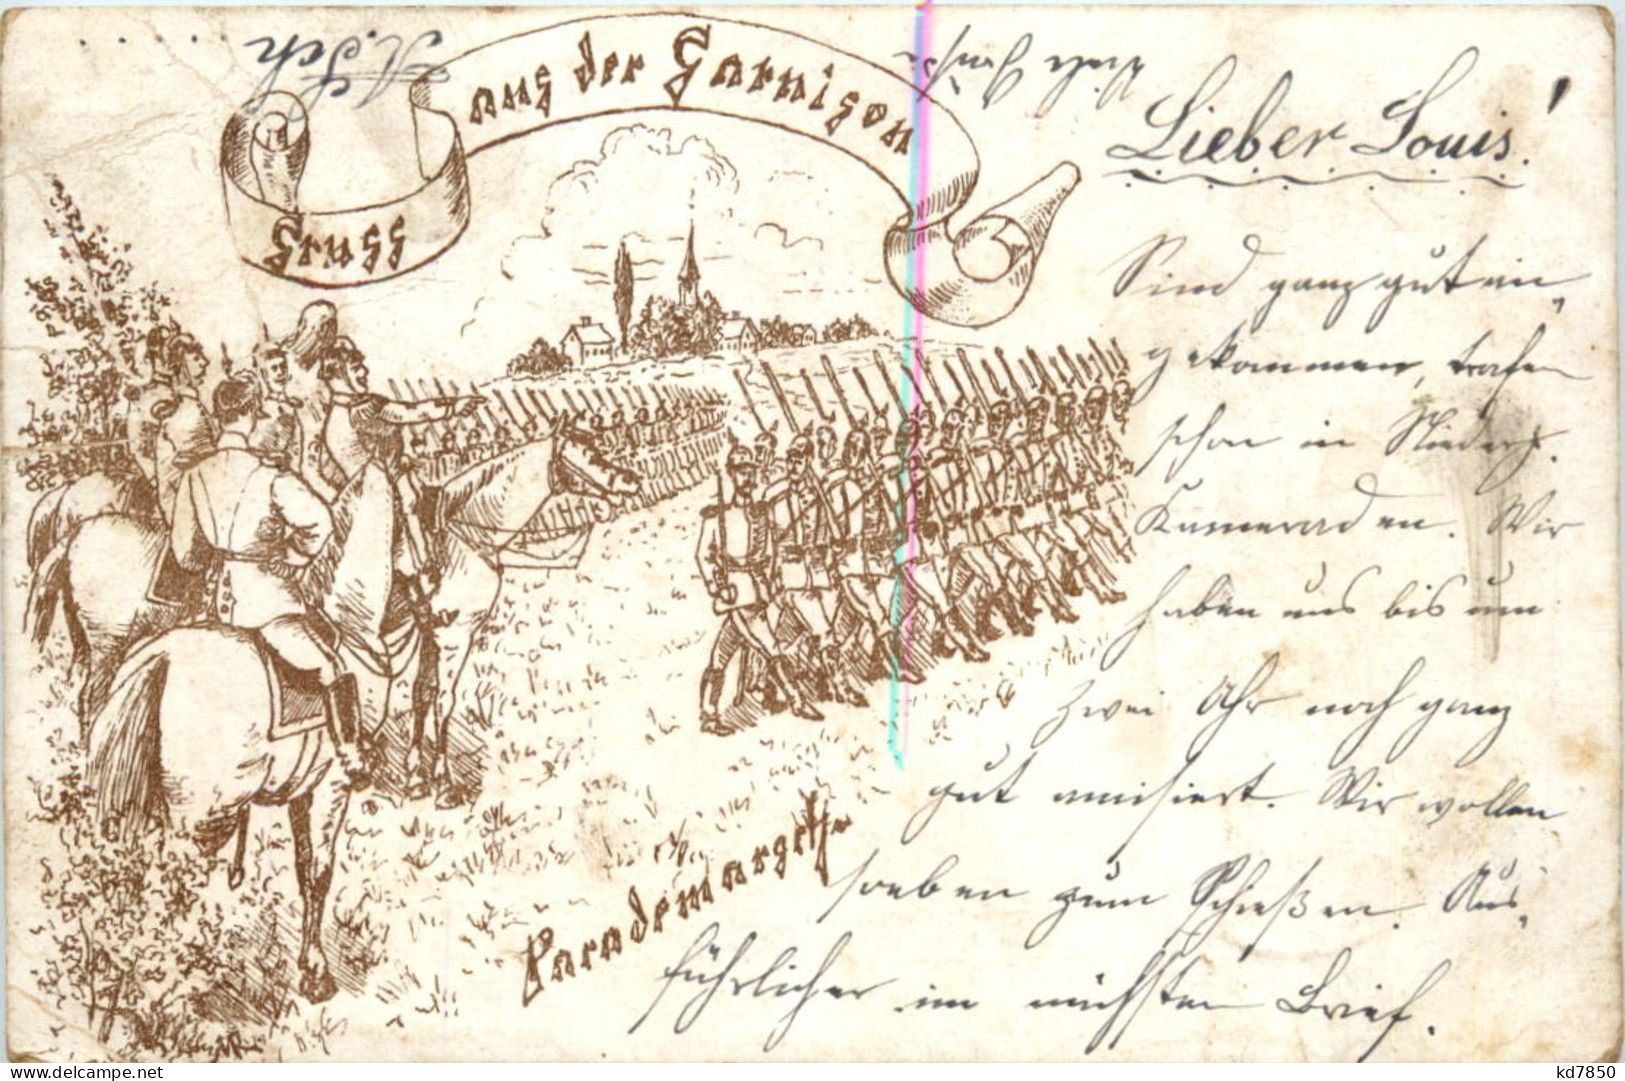 Gruss aus der Garnison
Lieber Louis!
Sind ganz gut an-
gekommen, trafen
schon in Niedersch.
Kameraden. Wir
haben uns bis um
zwei Uhr noch ganz
gut amisiert. Wir wollen
soeben zum Schießen. Aus-
führlicher im nächsten Brief.
Parademarsch
www.delcampe.net
kd7850